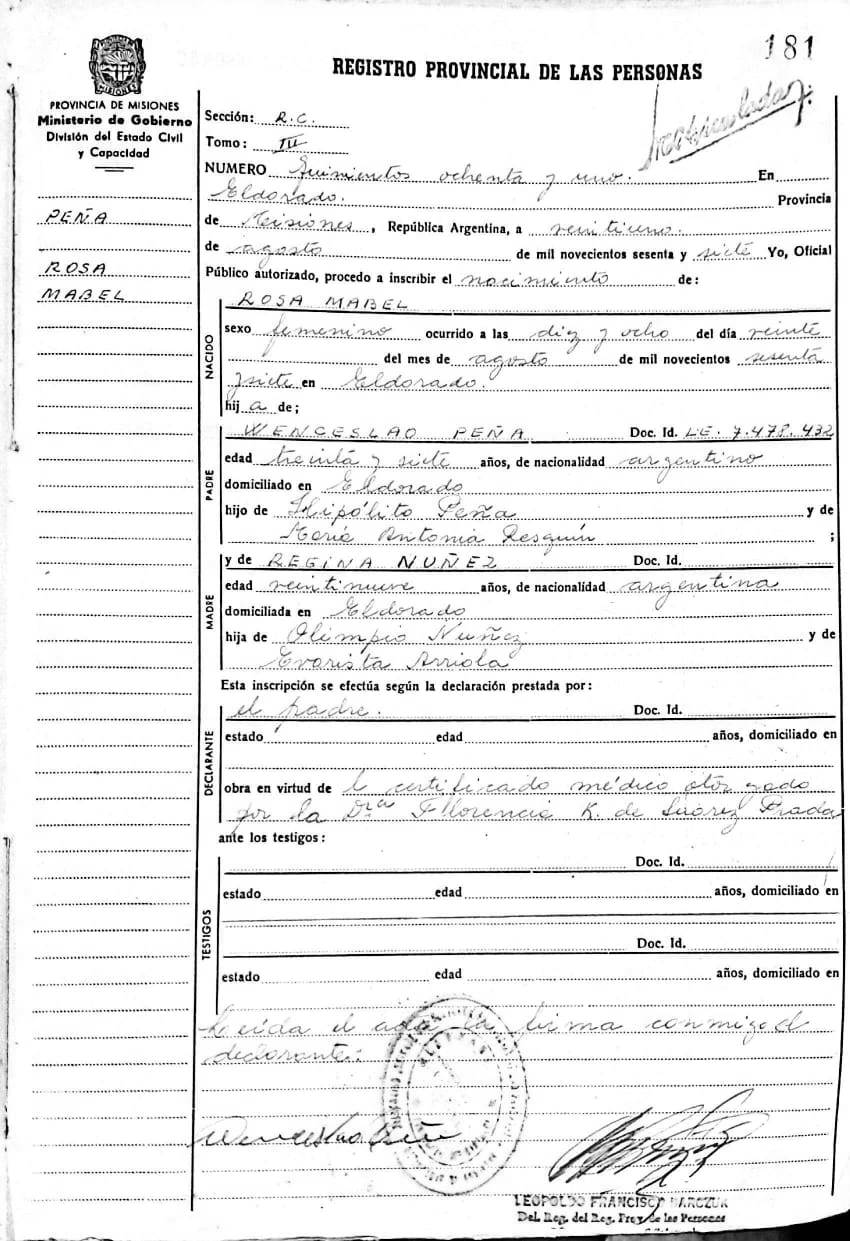 181
REGISTRO PROVINCIAL DE LAS PERSONAS
PROVINCIA DE MISIONES
Ministerio de Gobierno
División del Estado Civil
y Capacidad
PEÑA
ROSA
MABEL
Matriculada
Sección: R.C.
Tomo: III
NUMERO Quinientos ochenta y uno. En
Eldorado. Provincia
de Misiones, República Argentina, a veintiuno.
de agosto de mil novecientos sesenta y siete Yo, Oficial
Público autorizado, procedo a inscribir el nacimiento de:
NACIDO
ROSA MABEL
sexo femenino ocurrido a las diez y ocho del día veinte
del mes de agosto de mil novecientos sesenta
y siete en Eldorado.
hij a de;
PADRE
WENCESLAO PEÑA Doc. Id. LE. 7.478.432
edad treinta y siete años, de nacionalidad argentino
domiciliado en Eldorado
hijo de Hipólito Peña y de
María Antonia Resquín ;
MADRE
y de REGINA NUÑEZ Doc. Id.
edad veintinueve años, de nacionalidad argentina
domiciliada en Eldorado
hija de Olimpio Nuñez y de
Evarista Arriola
Esta inscripción se efectúa según la declaración prestada por:
DECLARANTE
el padre. Doc. Id.
estado edad años, domiciliado en
obra en virtud de l certificado médico otorgado
por la Dra Florencia K. de Suárez Prada
ante los testigos:
TESTIGOS
Doc. Id.
estado edad años, domiciliado en
Doc. Id.
estado edad años, domiciliado en
Leída el acta la firma conmigo el
declarante:
Wenceslao Peña
LEOPOLDO FRANCISCO
Del. Reg. del Reg. de las Personas